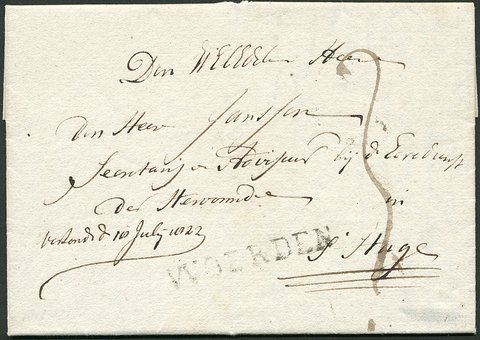 Den WelEdelen Heer
den Heer Janssen
Secretaris & Adviseur bij de Eeredienst
der Hervormde in
verzonden 10 July 1822
WOERDEN
s' Hage
3